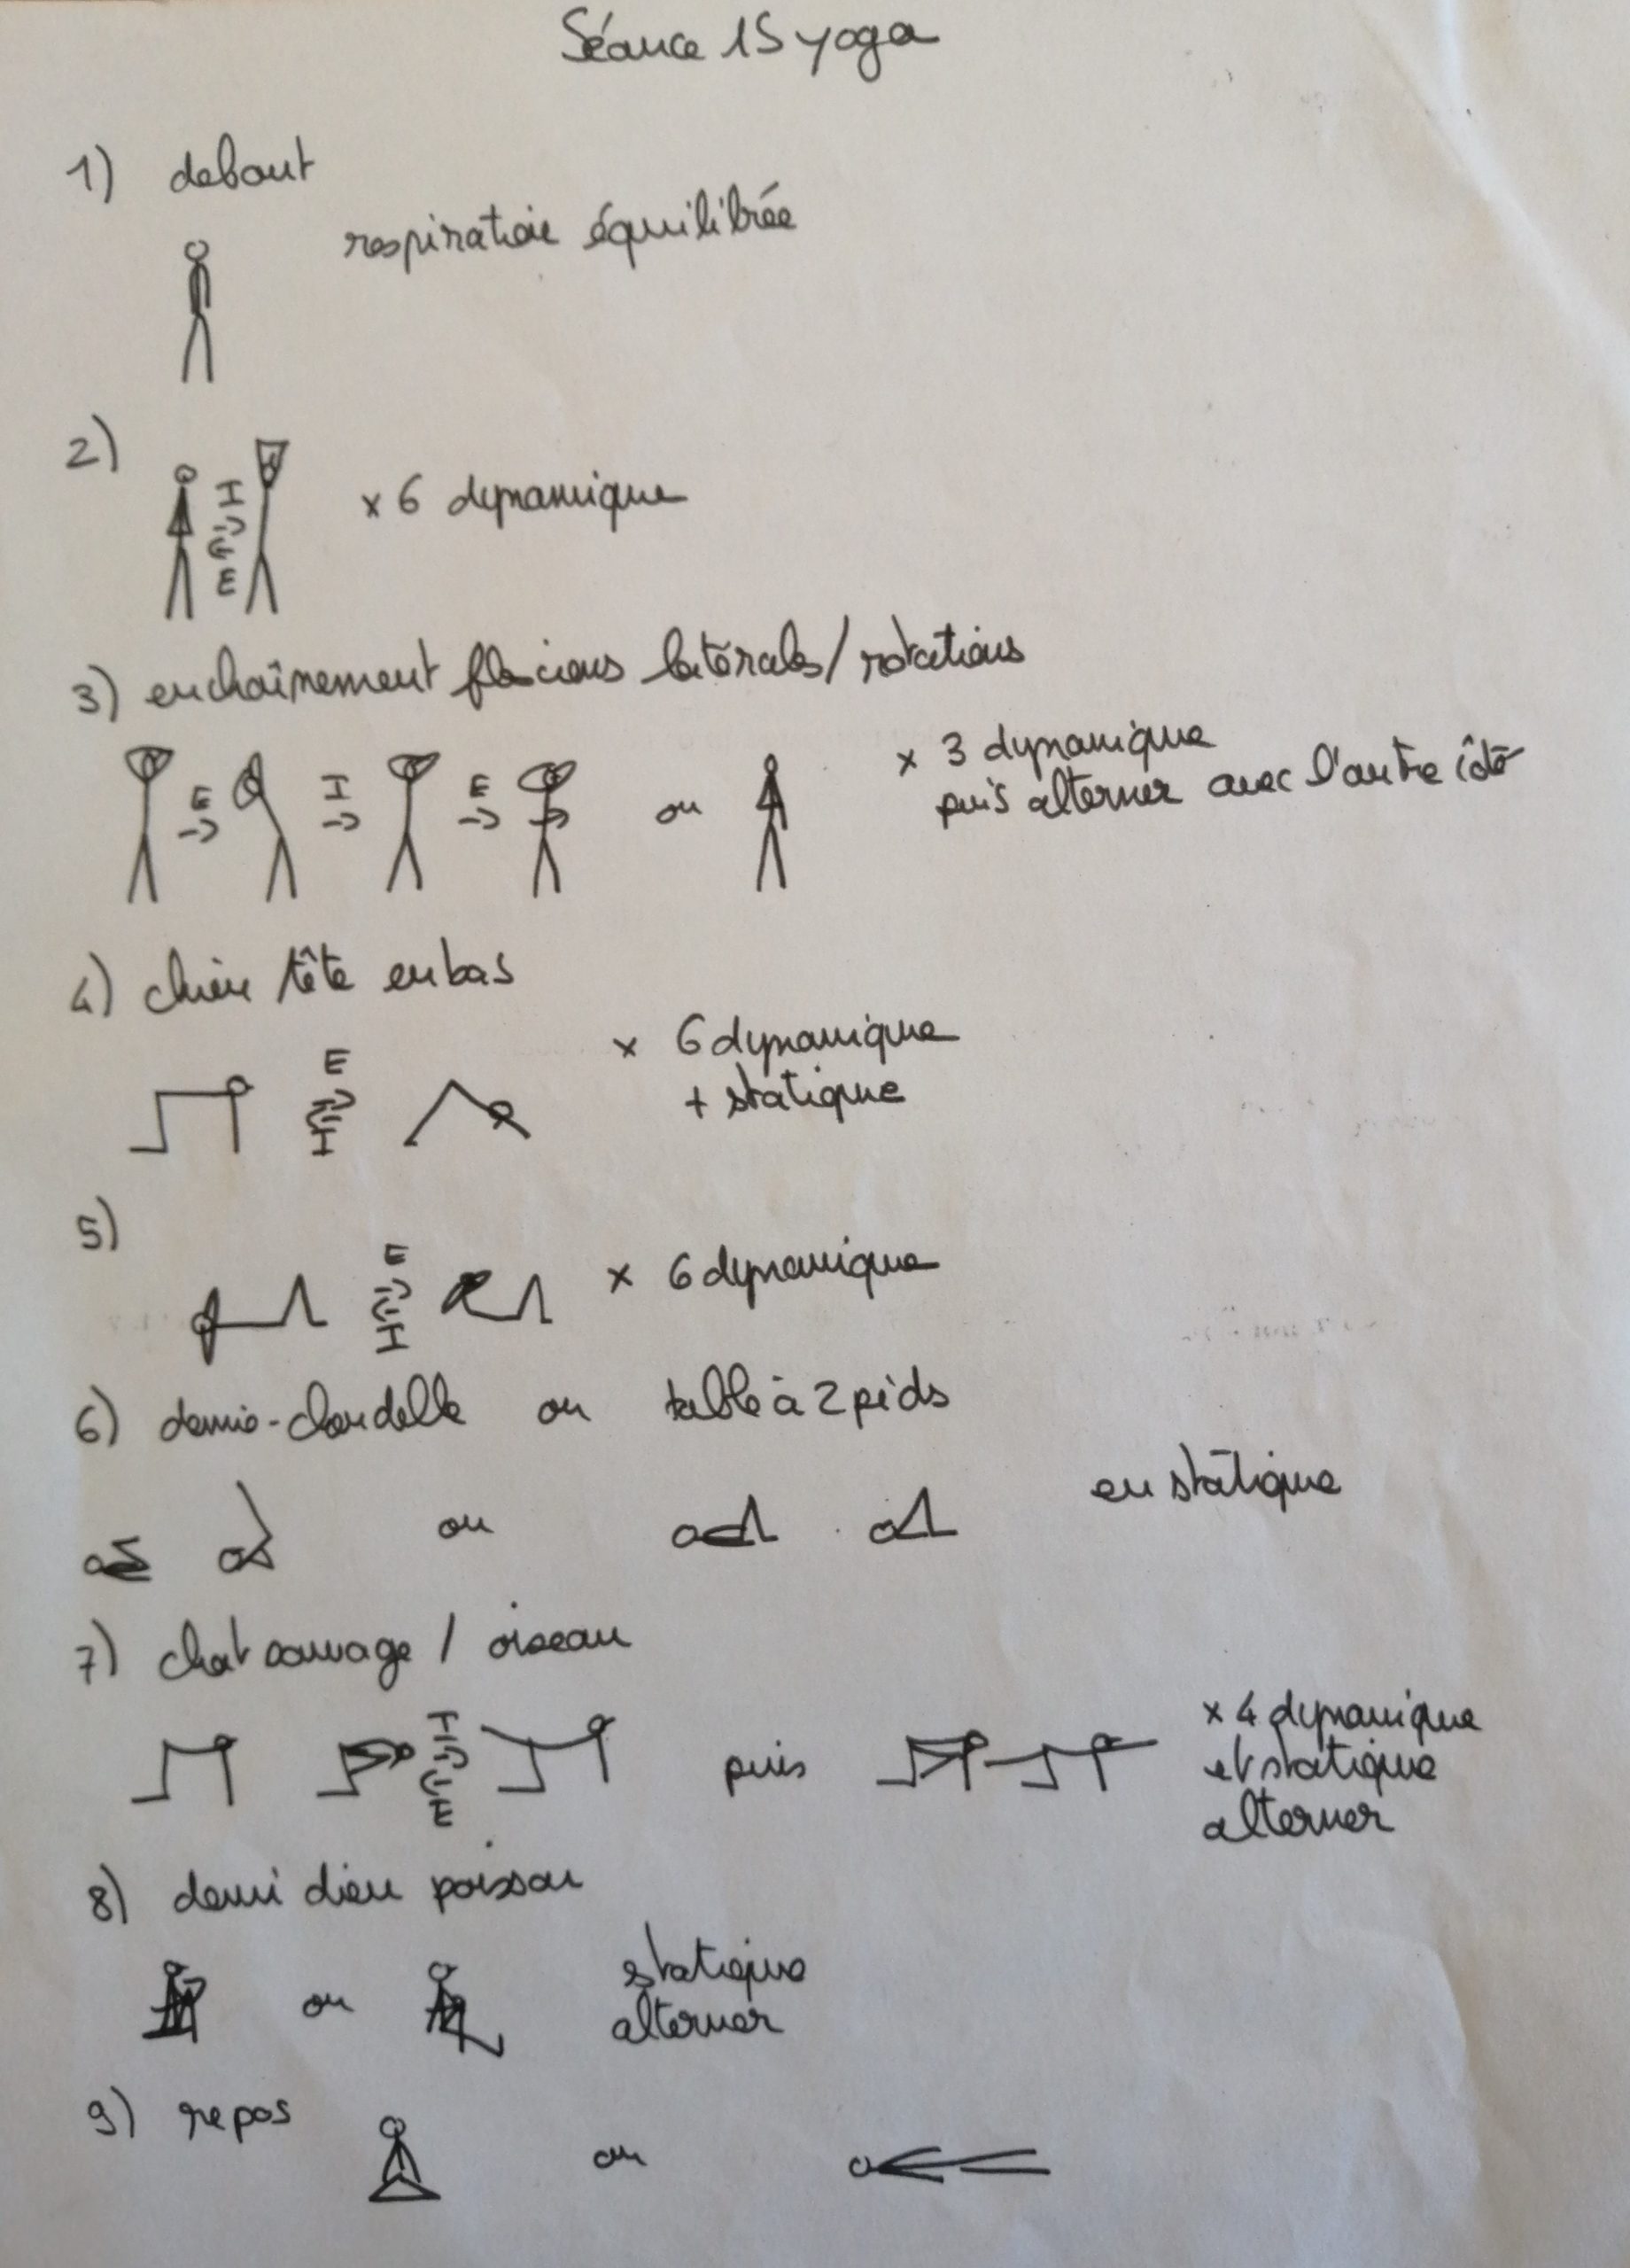 Séance 15 yoga
1) debout
respiration équilibrée
2)
I
E
x 6 dynamique
3) enchaînement flexions latérales / rotations
E I E ou
x 3 dynamique
puis alterner avec l'autre côté
4) chien tête en bas
E
I
x 6 dynamique
+ statique
5)
E
I
x 6 dynamique
6) demie-chandelle ou table à 2 pieds
ou
en statique
7) chat sauvage / oiseau
I
E
puis
x 4 dynamique
et statique
alterner
8) demi dieu poisson
ou
statique
alterner
9) repos
ou